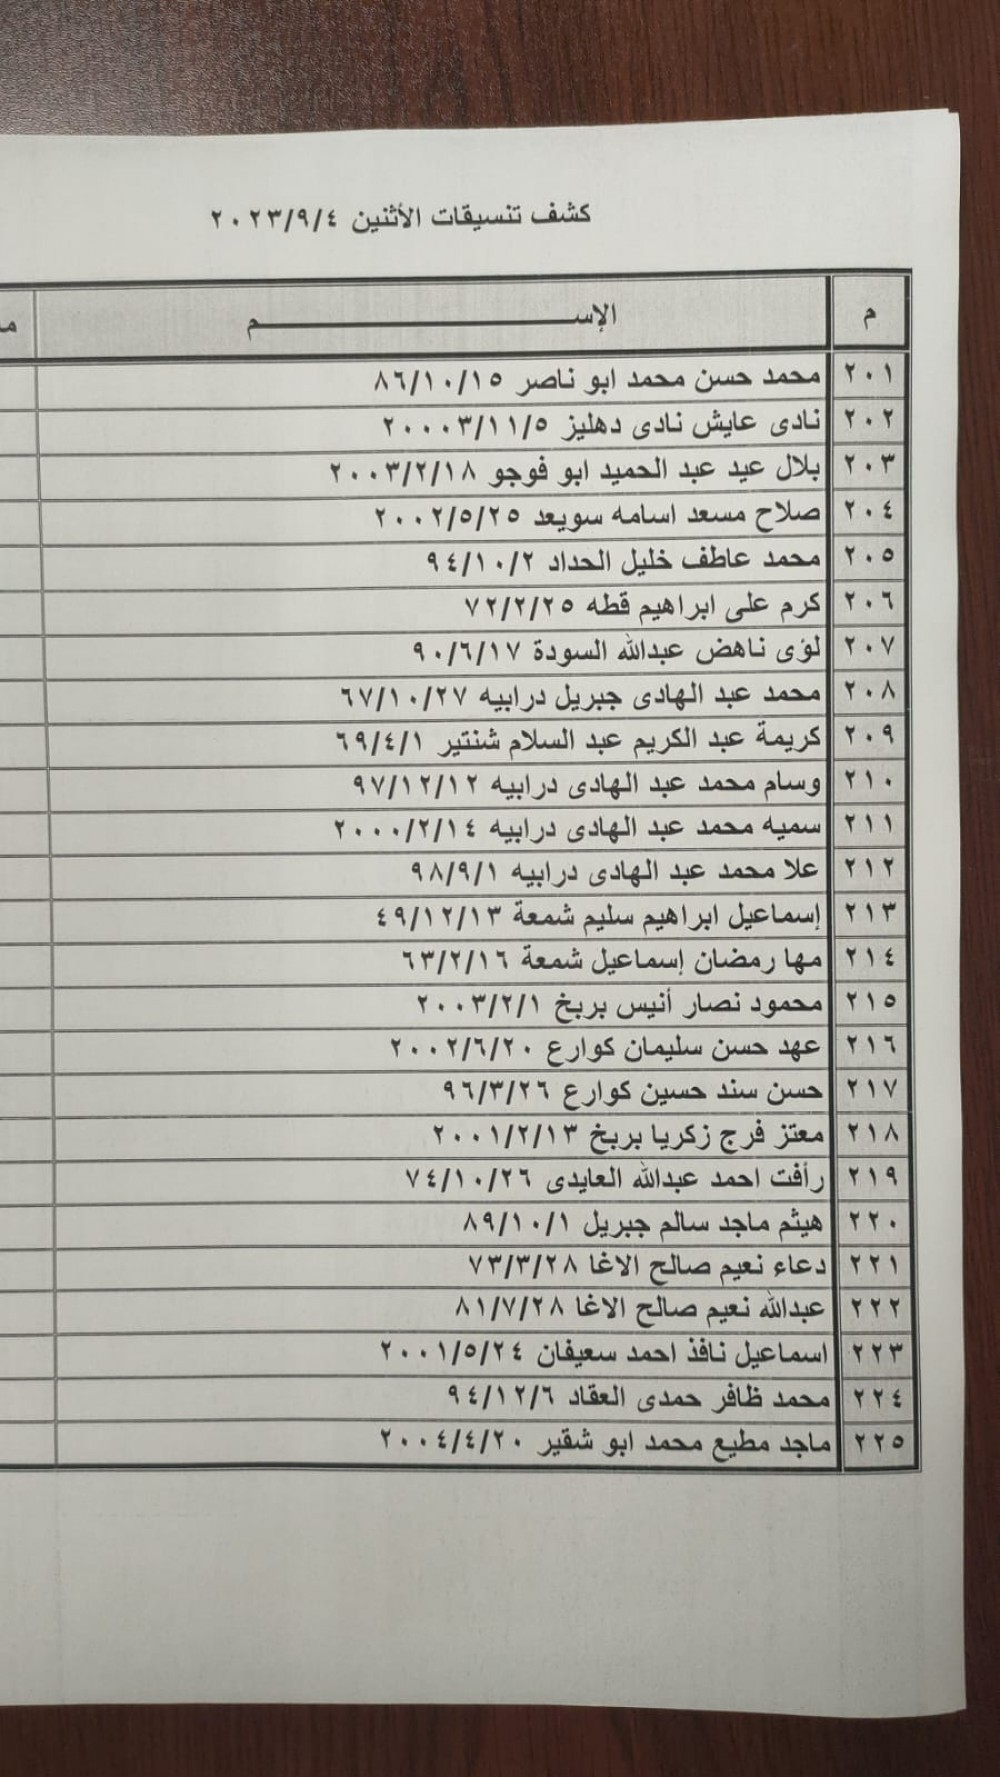 كشف تنسيقات الأثنين ٢٠٢٣/٩/٤
م الإســـــــــم
٢٠١ محمد حسن محمد ابو ناصر ٨٦/١٠/١٥
٢٠٢ نادى عايش نادى دهليز ٢٠٠٠٣/١١/٥
٢٠٣ بلال عيد عبد الحميد ابو فوجو ٢٠٠٣/٢/١٨
٢٠٤ صلاح مسعد اسامه سويعد ٢٠٠٢/٥/٢٥
٢٠٥ محمد عاطف خليل الحداد ٩٤/١٠/٢
٢٠٦ كرم على ابراهيم قطه ٧٢/٢/٢٥
٢٠٧ لؤى ناهض عبدالله السودة ٩٠/٦/١٧
٢٠٨ محمد عبد الهادى جبريل درابيه ٦٧/١٠/٢٧
٢٠٩ كريمة عبد الكريم عبد السلام شنتير ٦٩/٤/١
٢١٠ وسام محمد عبد الهادى درابيه ٩٧/١٢/١٢
٢١١ سميه محمد عبد الهادى درابيه ٢٠٠٠/٢/١٤
٢١٢ علا محمد عبد الهادى درابيه ٩٨/٩/١
٢١٣ إسماعيل ابراهيم سليم شمعة ٤٩/١٢/١٣
٢١٤ مها رمضان إسماعيل شمعة ٦٣/٢/١٦
٢١٥ محمود نصار أنيس بربخ ٢٠٠٣/٢/١
٢١٦ عهد حسن سليمان كوارع ٢٠٠٢/٦/٢٠
٢١٧ حسن سند حسين كوارع ٩٦/٣/٢٦
٢١٨ معتز فرج زكريا بربخ ٢٠٠١/٢/١٣
٢١٩ رأفت احمد عبدالله العايدى ٧٤/١٠/٢٦
٢٢٠ هيثم ماجد سالم جبريل ٨٩/١٠/١
٢٢١ دعاء نعيم صالح الاغا ٧٣/٣/٢٨
٢٢٢ عبدالله نعيم صالح الاغا ٨١/٧/٢٨
٢٢٣ اسماعيل نافذ احمد سعيفان ٢٠٠١/٥/٢٤
٢٢٤ محمد ظافر حمدى العقاد ٩٤/١٢/٦
٢٢٥ ماجد مطيع محمد ابو شقير ٢٠٠٤/٤/٢٠